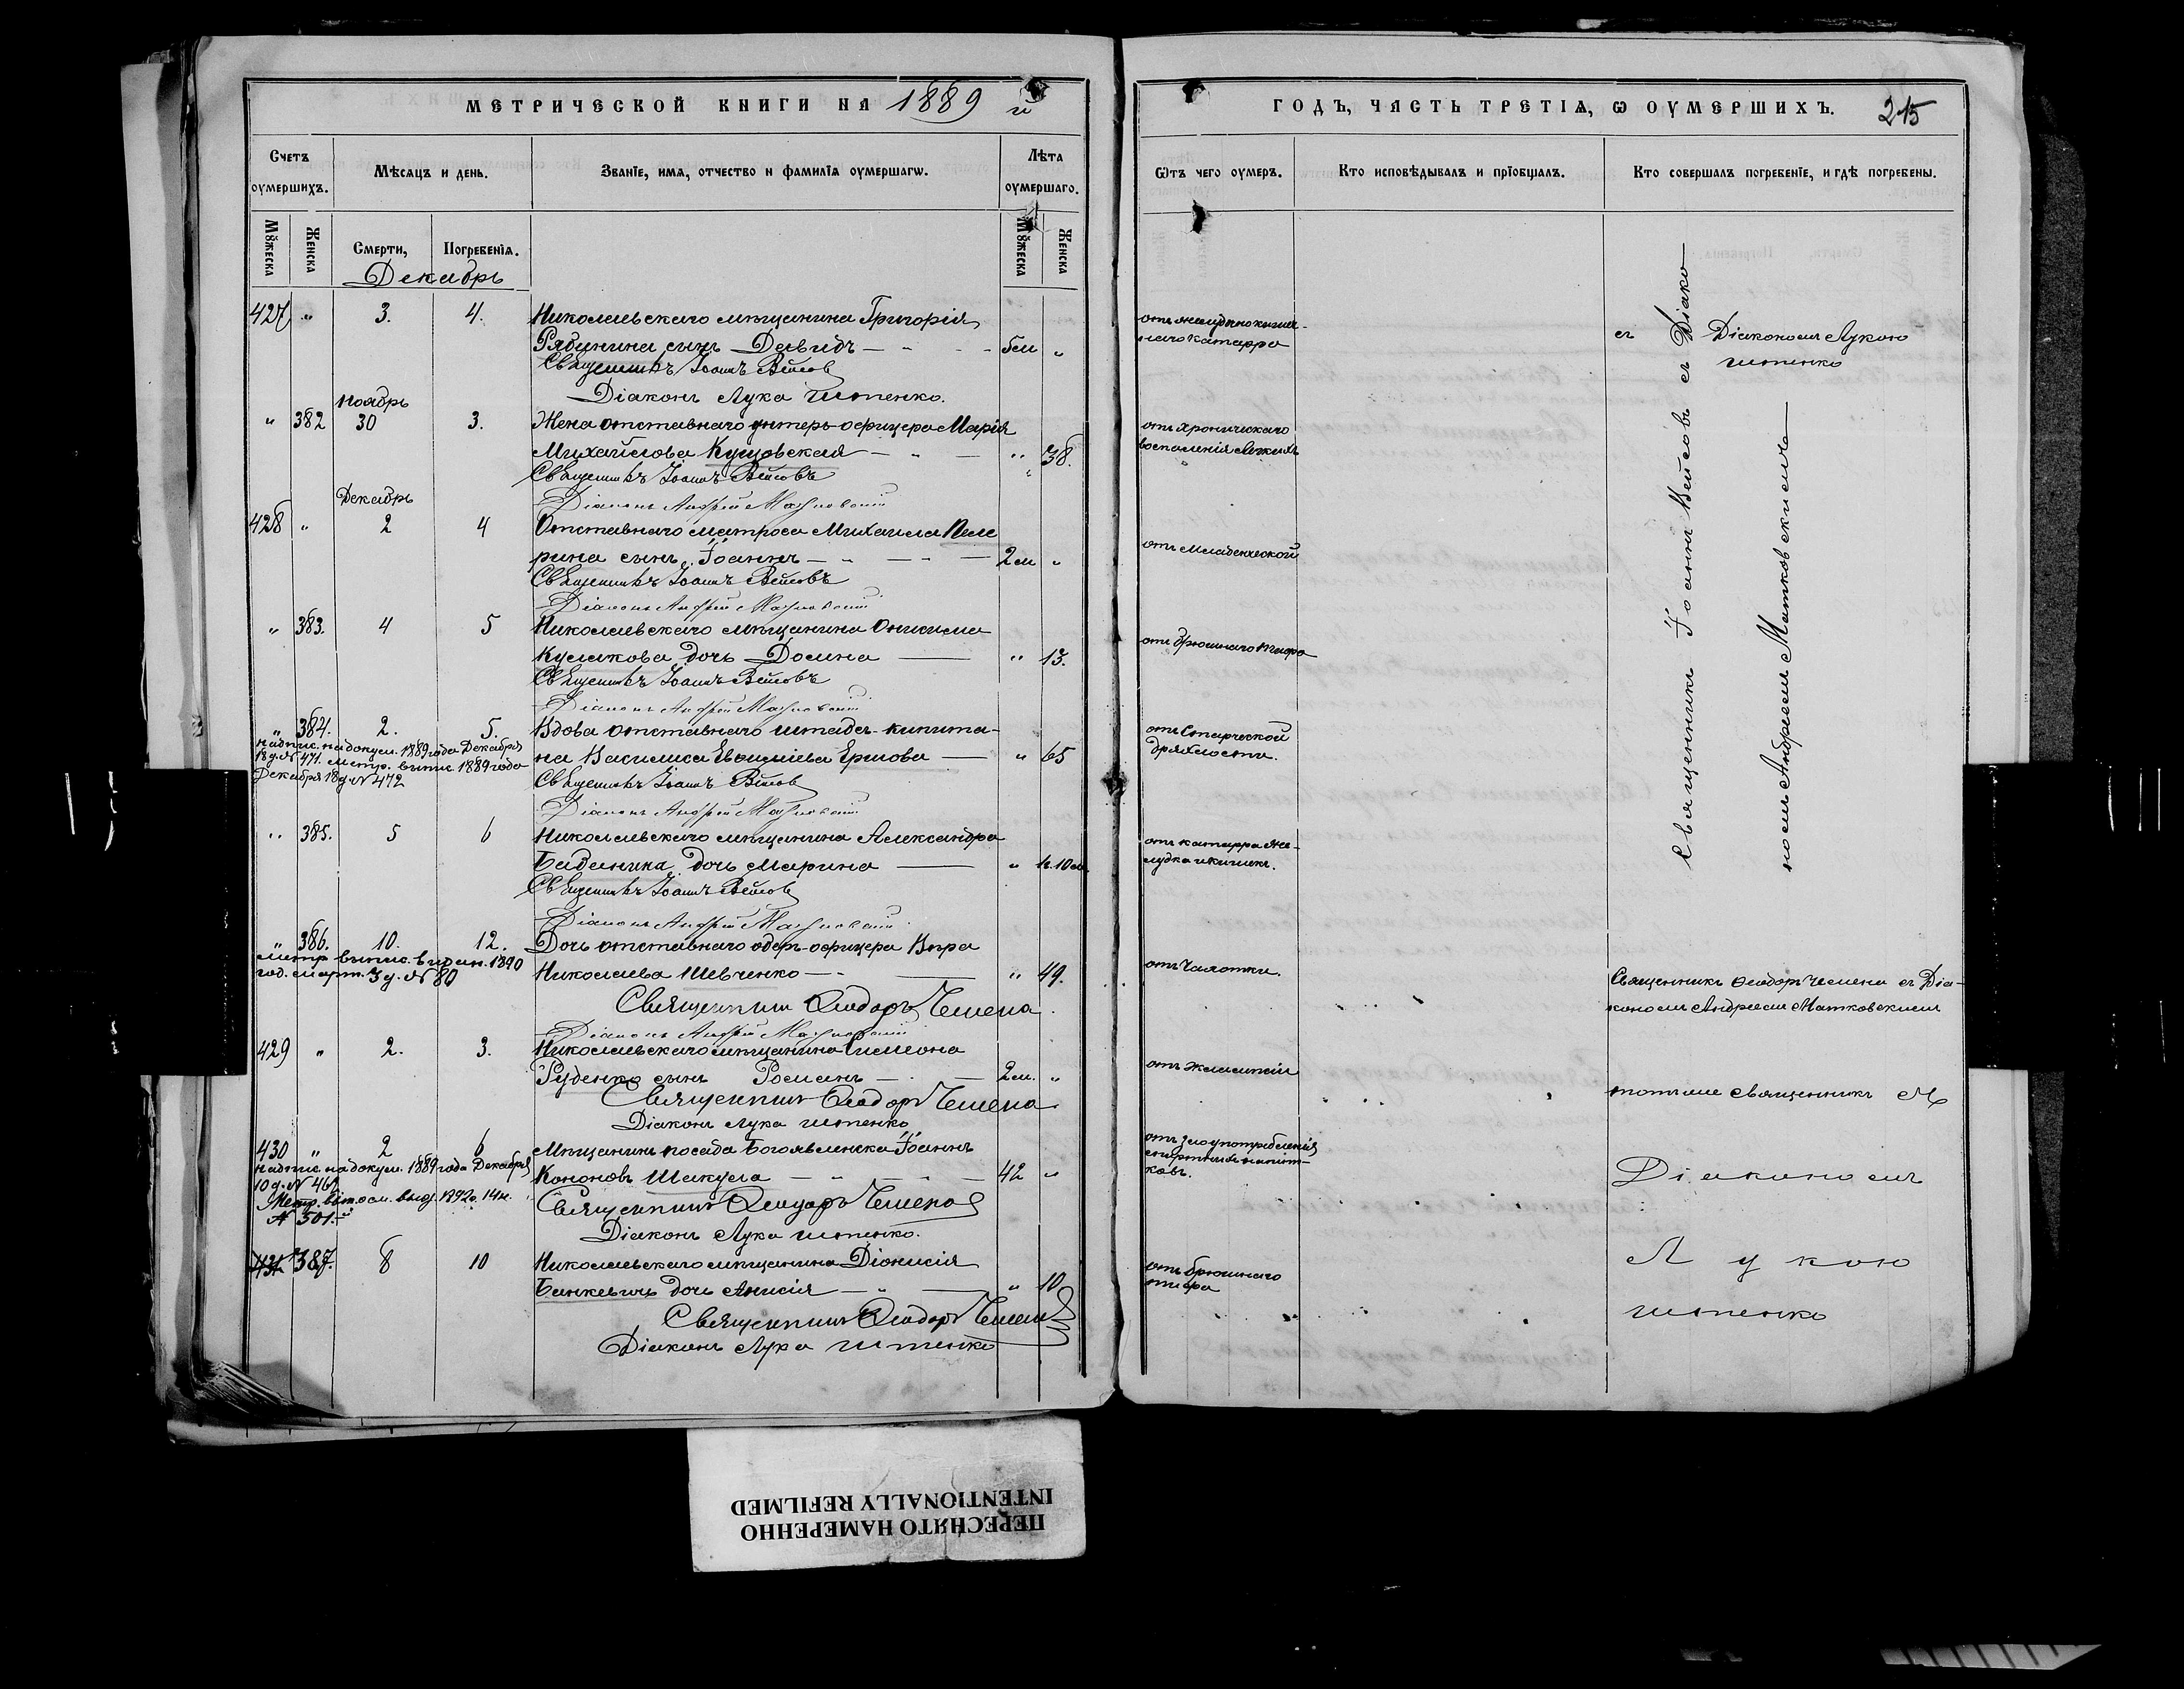 МЕТРИЧЕСКОЙ КНИГИ НА 1889 й
Счетъ оумершихъ.
Мѣсяцъ и день.
Званіе, имя, отчество и фамилія оумершагѡ.
Лѣта оумершаго.
Мꙋжеска
Женска
Смерти,
Погребенія.
Мꙋжеска
Женска
Декабрь
427 " 3. 4. Николаевскаго мѣщанина Григорія
Рябинина сынъ Давидъ — 5 м "
Священникъ Іоаннъ Вейсовъ
Діаконъ Лука Штенко.
Ноябрь
" 382 30 3. Жена отставнаго унтеръ-офицера Марія
Михайлова Куцовская — " 38.
Священникъ Іоаннъ Вейсовъ
Діаконъ Андрей Матковскій
Декабрь
428 " 2 4 Отставнаго матроса Михаила Пеле
рина сынъ Іоаннъ — 2 м "
Священникъ Іоаннъ Вейсовъ
Діаконъ Андрей Матковскій
" 383. 4 5 Николаевскаго мѣщанина Онисима
Куликова дочь Домна — " 13.
Священникъ Іоаннъ Вейсовъ
Діаконъ Андрей Матковскій
" 384. 2. 5. Вдова отставнаго штабсъ-капита-
на Василиса Евфиміева Ершова — " 65
надпис. на докум. 1889 года Декабря
18 д. № 471. метр. выпис 1889 года
Декабря 18 д № 472
Священникъ Іоаннъ Вейсовъ
Діаконъ Андрей Матковскій
" 385. 5 6 Николаевскаго мѣщанина Александра
дочь Марина — " 10 м.
Священникъ Іоаннъ Вейсовъ
Діаконъ Андрей Матковскій
" 386. 10. 12. Дочь отставнаго оберъ-офицера Вѣра
Николаева Шевченко — " 49.
метр выпис. выдан. 1890
год. март. 3 д. № 80
Священникъ Ѳеодоръ Чемена
Діаконъ Андрей Матковскій
429 " 2. 3. Николаевскаго мѣщанина Симеона
Руденко сынъ Романъ — 2 м. "
Священникъ Ѳеодоръ Чемена
Діаконъ Лука Штенко
430 " 2 6 Мѣщанинъ посада Богоявленска Іоаннъ
Кононовъ Шакула — 42 "
надпис на докум. 1889 года Декабря
10 д. № 461
Метр. выпис. выд. 1892 г. 14 н.
№ 501.
Священникъ Ѳеодоръ Чемена
Діаконъ Лука Штенко.
431 387. 8 10 Николаевскаго мѣщанина Діонисія
Банкевичъ дочь Анисія — " 10
Священникъ Ѳеодоръ Чемена
Діаконъ Лука Штенко
ГОДЪ, ЧАСТЬ ТРЕТІѦ, Ѡ ОУМЕРШИХЪ. 215
Ѿтъ чего оумеръ.
Кто исповѣдывалъ и пріобщалъ.
Кто совершалъ погребеніе, и гдѣ погребены.
отъ желудочнокишеч-
наго катарра
отъ хроническаго
воспаленія легкихъ
отъ младенческой
отъ брюшнаго тифа
отъ старческой
дряхлости.
отъ катарра же-
лудка и кишекъ.
отъ чахотки.
отъ эклампсіи
отъ злоупотребленія
спиртныхъ напит-
ковъ.
отъ брюшнаго
тифа
съ Діакономъ Лукою
Штенко
Священникъ Іоаннъ Вейсовъ съ Діако
номъ Андреемъ Матковскимъ
Священникъ Ѳеодоръ Чемена съ Діа-
кономъ Андреемъ Матковскимъ
тотъ же священникъ съ
Діакономъ
Лукою
Штенко
ПЕРЕСНЯТО НАМЕРЕННО
INTENTIONALLY REFILMED